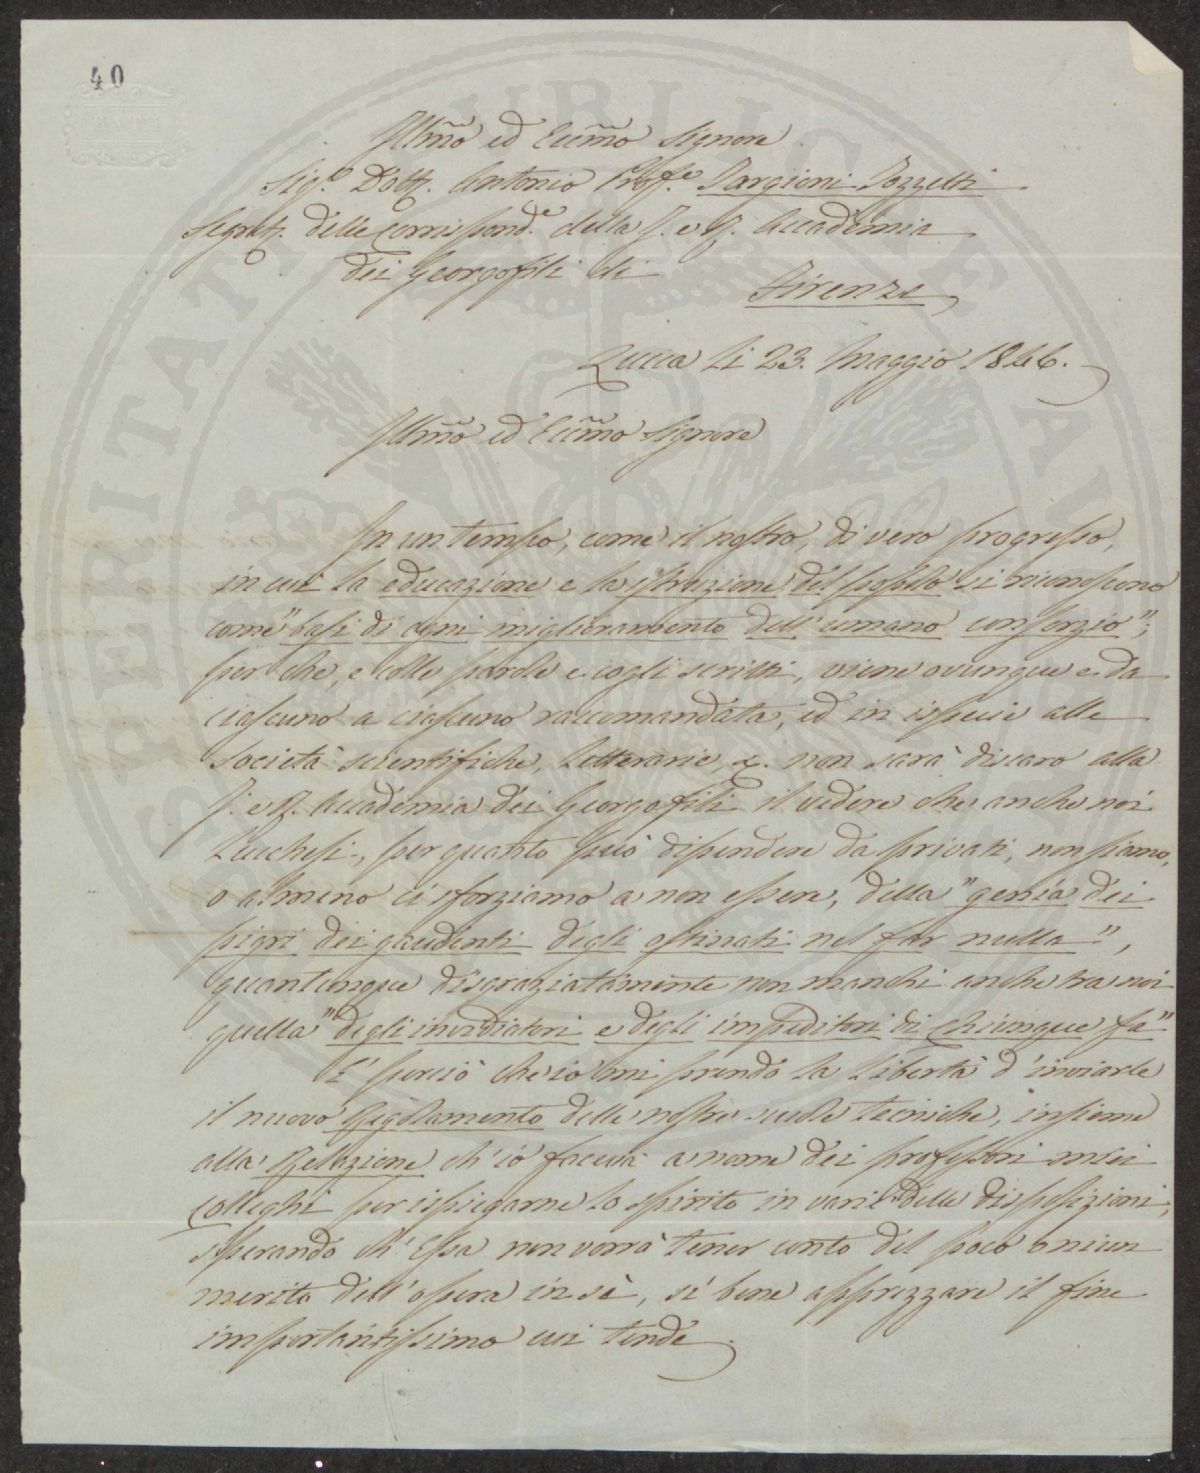 40
Illmõ ed Eccmõ Signore
Sigr. Dott. Antonio Profe. Targioni Tozzetti
Segret. delle Corrispondze. della I. e R. Accademia
dei Georgofili di
Firenze
Lucca li 23. Maggio 1846.
Illmõ ed Eccmõ Signore
In un tempo, come il nostro, di vero progresso,
in cui la educazione e la istruzione del popolo si riconoscono
come "basi di ogni miglioramento dell'umano consorzio";
per che, e colle parole e cogli scritti, viene ovunque e da
ciascuno a ciascuno raccomandata, ed in ispecie alle
Società scientifiche, letterarie, &. non sarà discaro alla
I. e R. Accademia dei Georgofili il vedere che anche noi
Lucchesi, per quanto può dipendere da privati, non siamo,
o almeno ci sforziamo a non essere, della "genia dei
pigri dei gaudenti degli ostinati nel far nulla",
quantunque disgraziatamente non manchi anche tra noi
quella "degli invidiatori e degli impeditori di chiunque fa"
E' perciò che io mi prendo la libertà d'inviarle
il nuovo Regolamento delle nostre scuole tecniche, insieme
alla Relazione ch'io faceva a nome dei professori miei
Colleghi per ispiegarne lo spirito in varie delle disposizioni,
sperando ch'Essa non vorrà tener conto del poco o niun
merito dell'opera in sè, sì bene apprezzare il fine
importantissimo cui tende.
PERITAT
PUBLICAE